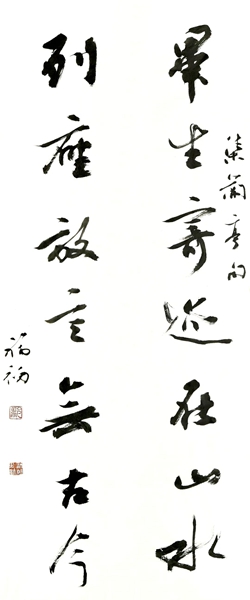 集蘭亭句
畢生寄迹在山水
列座放言無古今